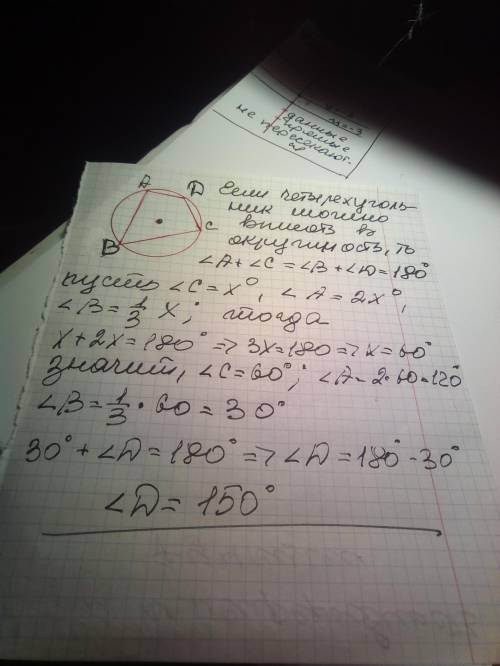 данные
прямые
не пересекают-
ся
A
D
C
B
Если четырехуголь-
ник можно
вписать в
окружность, то
∠A+∠C=∠B+∠D=180°
пусть ∠C=x°, ∠A=2x°,
∠B=1/3 x; тогда
x+2x=180°=>3x=180=>x=60°
значит, ∠C=60°; ∠A=2·60=120°
∠B=1/3·60=30°
30°+∠D=180°=>∠D=180°-30°
∠D=150°